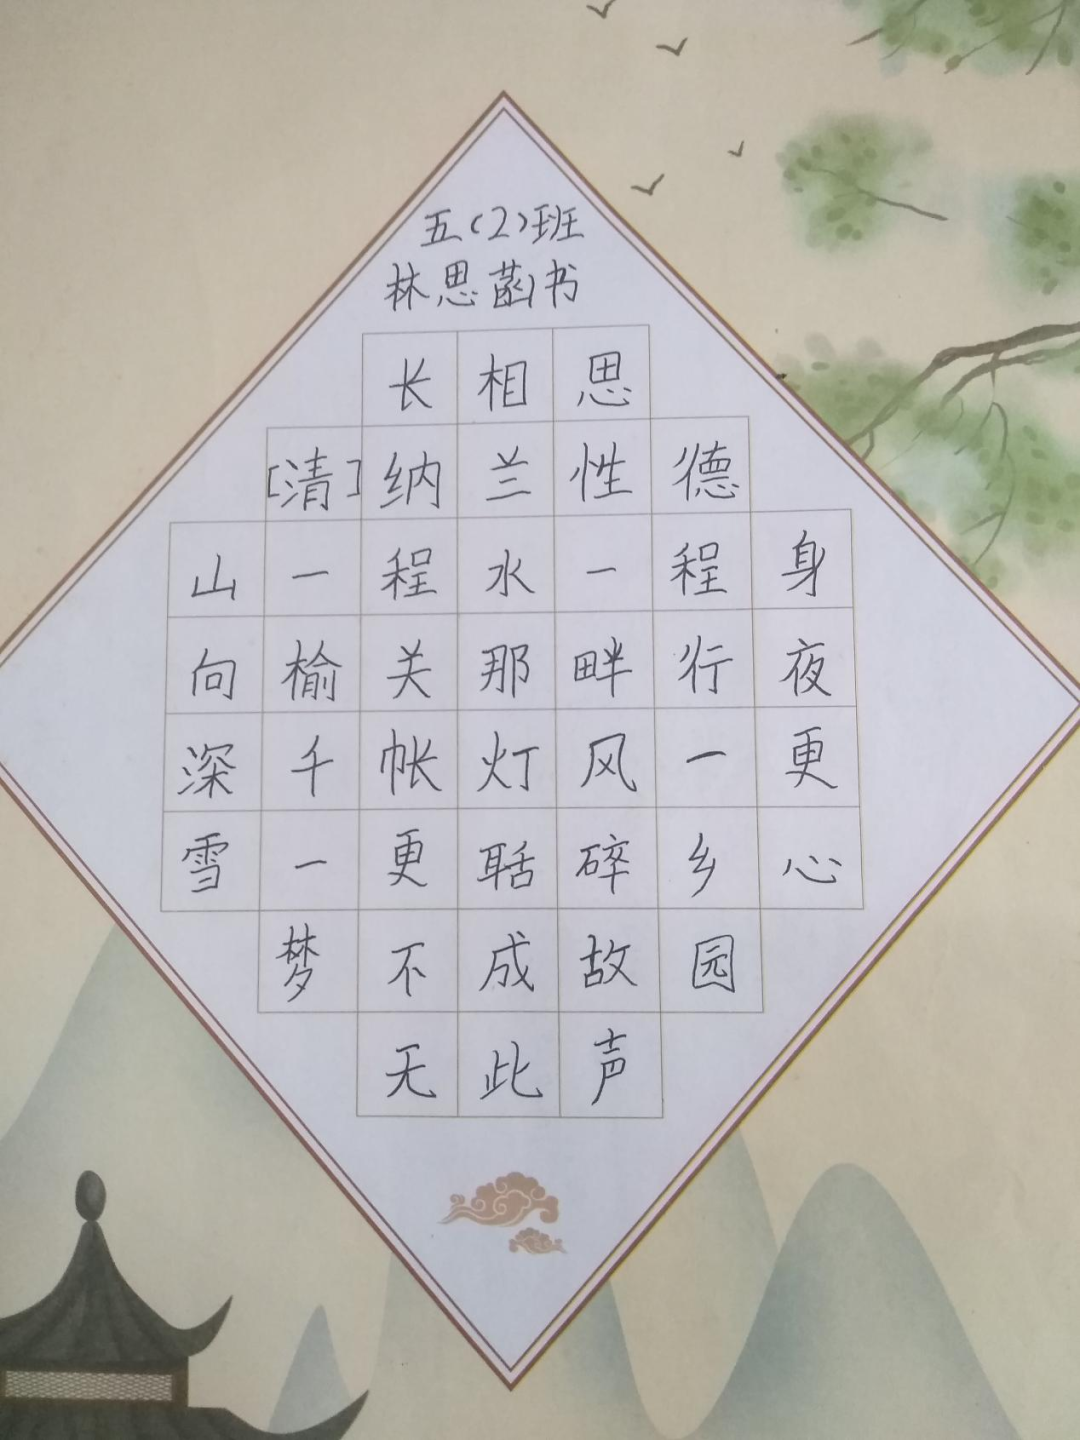 五(2)班
林思菡书
长相思
[清]纳兰性德
山一程水一程身
向榆关那畔行夜
深千帐灯风一更
雪一更聒碎乡心
梦不成故园
无此声